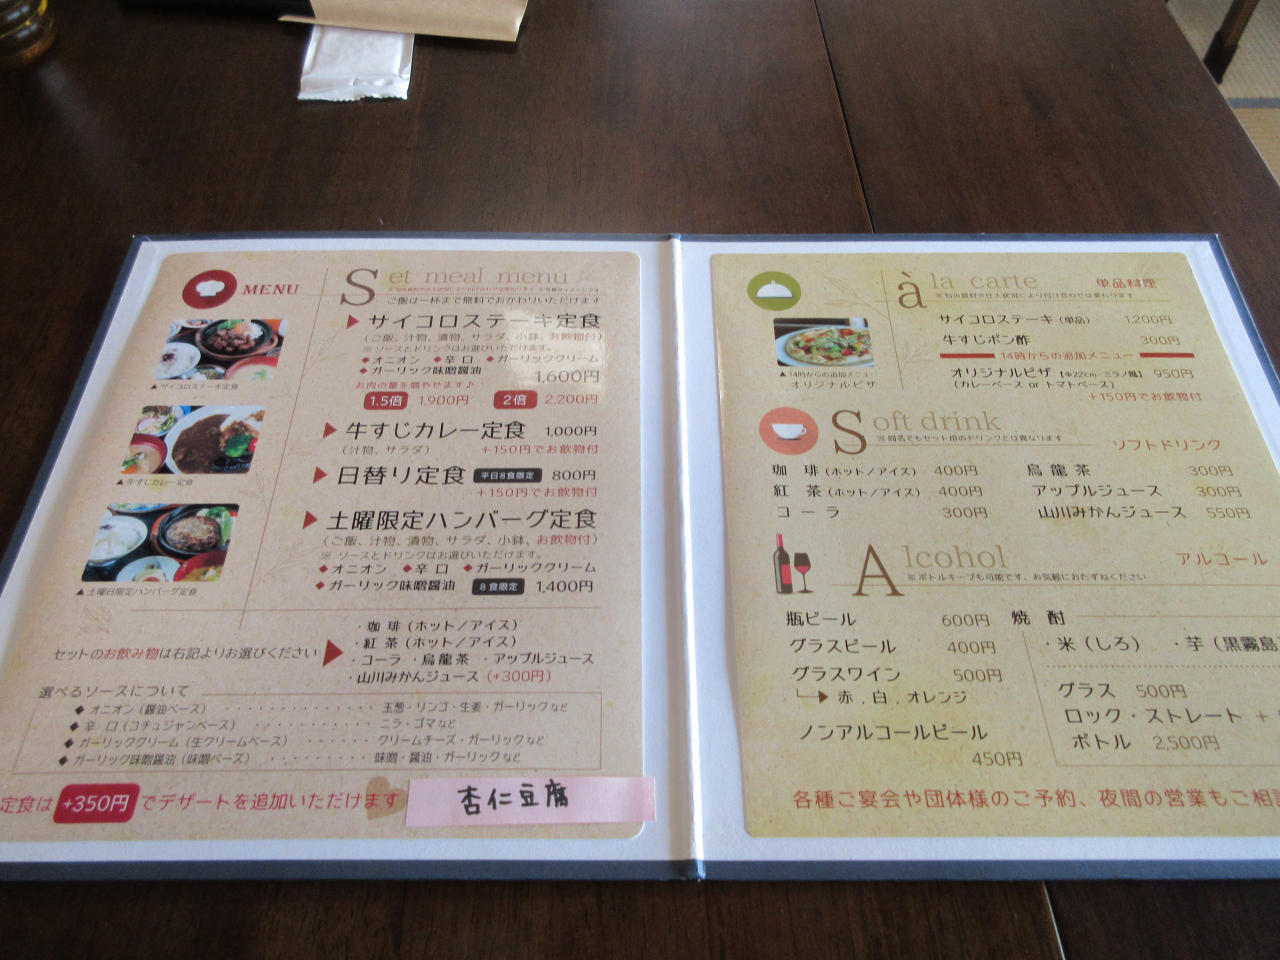 MENU
Set meal menu
ご飯は一杯まで無料でおかわりいただけます
▶ サイコロステーキ定食
(ご飯、汁物、漬物、サラダ、小鉢、お飲物付)
※ ソースとドリンクはお選びいただけます。
◆オニオン ◆辛口 ◆ガーリッククリーム
◆ガーリック味噌醤油 1,600円
お肉の量を増やせます♪
1.5倍 1,900円 2倍 2,200円
▲サイコロステーキ定食
▶ 牛すじカレー定食 1,000円
(汁物、サラダ) +150円でお飲物付
▶ 日替り定食 平日8食限定 800円
+150円でお飲物付
▲牛すじカレー定食
▶ 土曜限定ハンバーグ定食
(ご飯、汁物、漬物、サラダ、小鉢、お飲物付)
※ ソースとドリンクはお選びいただけます。
◆オニオン ◆辛口 ◆ガーリッククリーム
◆ガーリック味噌醤油 8食限定 1,400円
▲土曜日限定ハンバーグ定食
セットのお飲み物は右記よりお選びください
・珈琲(ホット/アイス)
・紅茶(ホット/アイス)
・コーラ ・烏龍茶 ・アップルジュース
・山川みかんジュース(+300円)
選べるソースについて
◆ オニオン(醤油ベース) ・・・・・・・・・・・・・ 玉葱・リンゴ・生姜・ガーリックなど
◆ 辛 口(コチュジャンベース) ・・・・・・・・・・ ニラ・ゴマなど
◆ ガーリッククリーム(生クリームベース) ・・・・・・ クリームチーズ・ガーリックなど
◆ ガーリック味噌醤油(味噌ベース) ・・・・・・・・ 味噌・醤油・ガーリックなど
定食は +350円 でデザートを追加いただけます
杏仁豆腐
à la carte 単品料理
※旬の食材や仕入状況により付け合わせは変わります
サイコロステーキ(単品) 1,200円
牛すじポン酢 300円
14時からの追加メニュー
オリジナルピザ【Φ22cm・ミラノ風】 950円
(カレーベース or トマトベース)
+150円でお飲物付
▲14時からの追加メニュー
オリジナルピザ
Soft drink ソフトドリンク
※同名でもセット用のドリンクとは異なります
珈 琲(ホット/アイス) 400円
紅 茶(ホット/アイス) 400円
コーラ 300円
烏龍茶 300円
アップルジュース 300円
山川みかんジュース 550円
Alcohol アルコール
※ボトルキープも可能です、お気軽におたずねください
瓶ビール 600円
グラスビール 400円
グラスワイン 500円
赤.白.オレンジ
ノンアルコールビール
450円
焼 酎
・米(しろ) ・芋(黒霧島
グラス 500円
ロック・ストレート +
ボトル 2,500円
各種ご宴会や団体様のご予約、夜間の営業もご相談